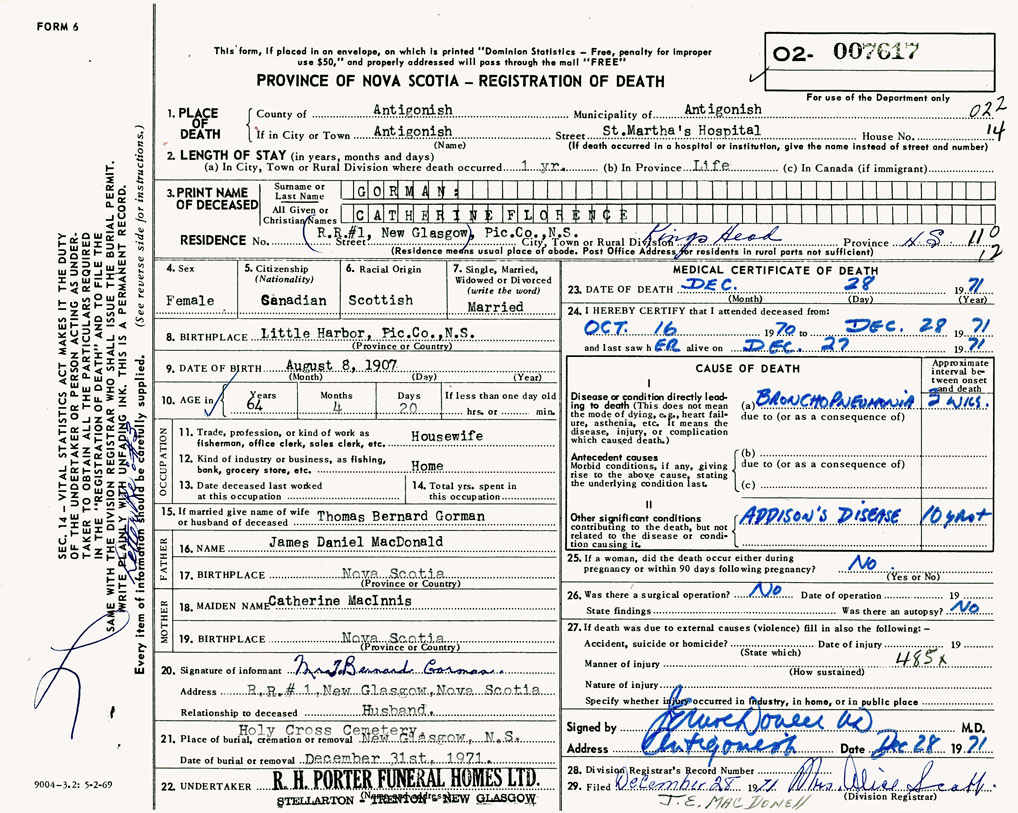 FORM 6
This form, if placed in an envelope, on which is printed "Dominion Statistics – Free, penalty for improper
use $50," and properly addressed will pass through the mail "FREE"
PROVINCE OF NOVA SCOTIA – REGISTRATION OF DEATH
02- 007617
For use of the Department only
022
14
1. PLACE OF DEATH
County of Antigonish Municipality of Antigonish
If in City or Town Antigonish Street St.Martha's Hospital House No.
(Name) (If death occurred in a hospital or institution, give the name instead of street and number)
2. LENGTH OF STAY (in years, months and days)
(a) In City, Town or Rural Division where death occurred 1 yr. (b) In Province Life (c) In Canada (if immigrant)
3. PRINT NAME OF DECEASED
Surname or Last Name GORMAN:
All Given or Christian Names CATHERINE FLORENCE
R.R.#1, New Glasgow, Pic.Co.,N.S.
RESIDENCE No. Street City, Town or Rural Division Kings Head Province N S 110
12
(Residence means usual place of abode. Post Office Address for residents in rural parts not sufficient)
4. Sex
Female
5. Citizenship
(Nationality)
Canadian
6. Racial Origin
Scottish
7. Single, Married,
Widowed or Divorced
(write the word)
Married
8. BIRTHPLACE Little Harbor, Pic.Co.,N.S.
(Province or Country)
9. DATE OF BIRTH August 8, 1907
(Month) (Day) (Year)
10. AGE in
Years 64
Months 4
Days 20
If less than one day old
hrs. or min.
OCCUPATION
11. Trade, profession, or kind of work as
fisherman, office clerk, sales clerk, etc. Housewife
12. Kind of industry or business, as fishing,
bank, grocery store, etc. Home
13. Date deceased last worked
at this occupation
14. Total yrs. spent in
this occupation
15. If married give name of wife
or husband of deceased Thomas Bernard Gorman
FATHER
16. NAME James Daniel MacDonald
17. BIRTHPLACE Nova Scotia
(Province or Country)
MOTHER
18. MAIDEN NAME Catherine MacInnis
19. BIRTHPLACE Nova Scotia
(Province or Country)
20. Signature of informant Mr T Bernard Gorman
Address R.R.# 1,New Glasgow,Nova Scotia
Relationship to deceased Husband.
Holy Cross Cemetery
21. Place of burial, cremation or removal New Glasgow, N.S.
Date of burial or removal December 31st, 1971.
22. UNDERTAKER R. H. PORTER FUNERAL HOMES LTD.
(Name and address)
STELLARTON – TRENTON – NEW GLASGOW
MEDICAL CERTIFICATE OF DEATH
23. DATE OF DEATH DEC. 28 1971
(Month) (Day) (Year)
24. I HEREBY CERTIFY that I attended deceased from:
OCT. 16 1970 to DEC. 28 1971
and last saw hER alive on DEC. 27 1971
CAUSE OF DEATH
Approximate
interval be-
tween onset
and death
I
Disease or condition directly lead-
ing to death (This does not
mean the mode of dying, e.g., heart fail-
ure, asthenia, etc. It means the
disease, injury, or complication
which caused death.)
(a) BRONCHOPNEUMONIA WKS.
due to (or as a consequence of)
Antecedent causes
Morbid conditions, if any, giving
rise to the above cause, stating
the underlying condition last.
(b)
due to (or as a consequence of)
(c)
II
Other significant conditions
contributing to the death, but not
related to the disease or condi-
tion causing it.
ADDISON'S DISEASE 10 yrs+
25. If a woman, did the death occur either during
pregnancy or within 90 days following pregnancy? No
(Yes or No)
26. Was there a surgical operation? No Date of operation 19
State findings Was there an autopsy? No
27. If death was due to external causes (violence) fill in also the following: –
Accident, suicide or homicide? Date of injury 19
(State which)
485x
Manner of injury
(How sustained)
Nature of injury
Specify whether injury occurred in industry, in home, or in public place
Signed by M.D.
Address Antigonish Date Dec 28 1971
28. Division Registrar's Record Number
29. Filed December 28 1971 Mrs. Alice Scott
(Division Registrar)
J.E. MACDONELL
SEC. 14 – VITAL STATISTICS ACT MAKES IT THE DUTY
OF THE UNDERTAKER OR PERSON ACTING AS UNDER-
TAKER TO OBTAIN ALL THE PARTICULARS REQUIRED
IN THE "REGISTRATION OF DEATH" AND TO FILE THE
SAME WITH THE DIVISION REGISTRAR WHO SHALL ISSUE THE BURIAL PERMIT.
WRITE PLAINLY WITH UNFADING INK. THIS IS A PERMANENT RECORD.
Every item of information should be carefully supplied. (See reverse side for instructions.)
9004-3.2: 5-2-69